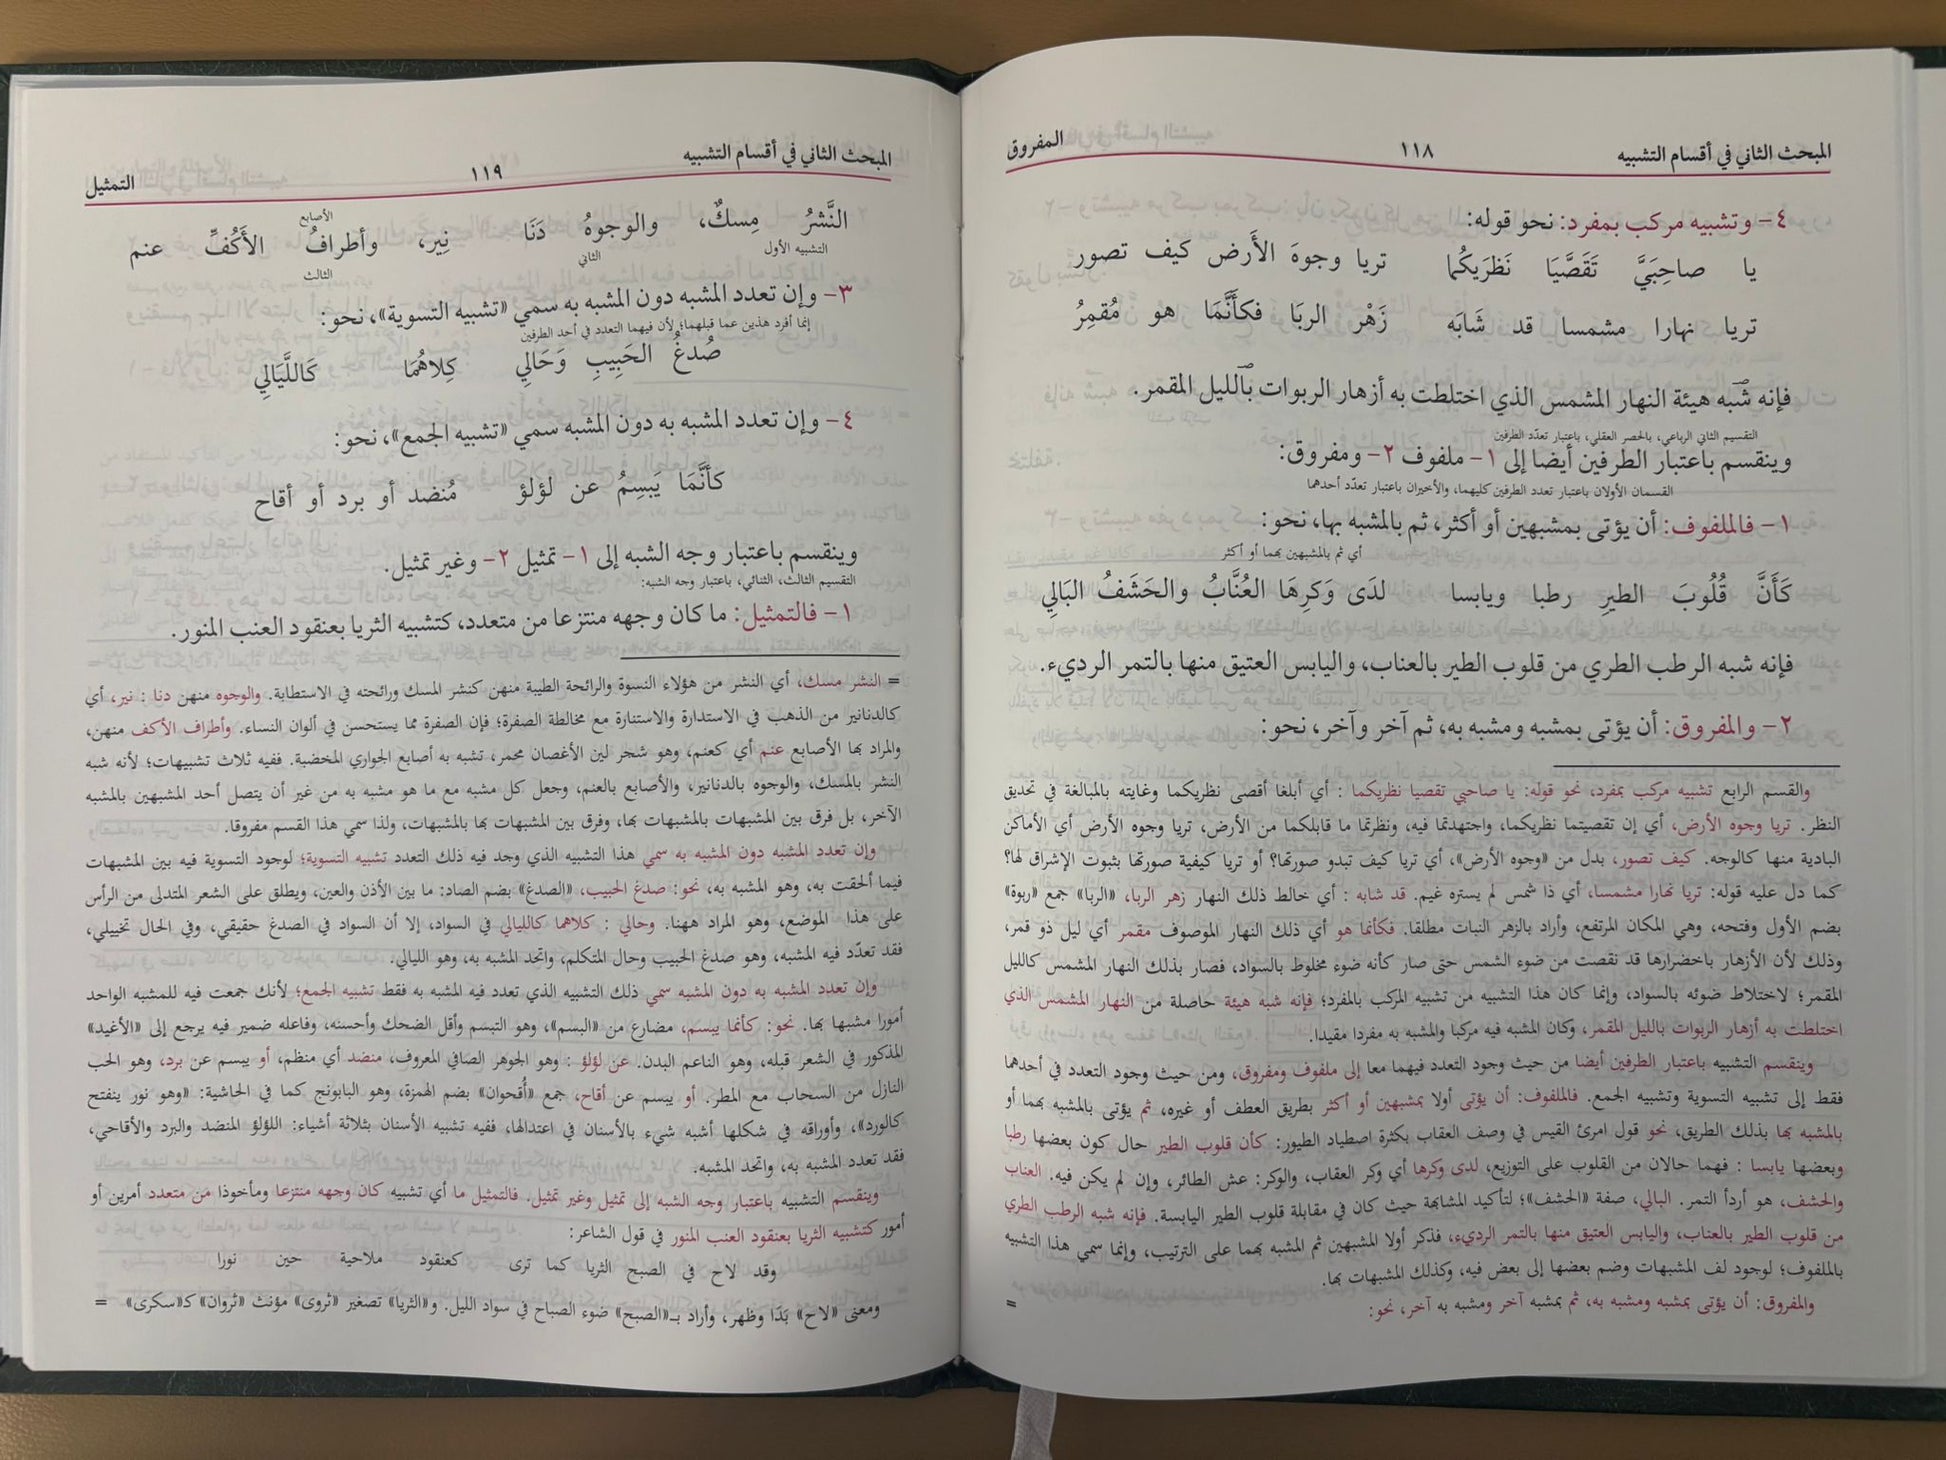 المبحث الثاني في أقسام التشبيه ١١٨ المفروق
٤- وتشبيه مركب بمفرد: نحو قوله:
يا صاحِبَيَّ تَقَصَّيَا نَظَرَيكُما تريا وجوهَ الأَرض كيف تصور
تريا نهارا مشمسا قد شَابَه زَهْر الربَا فكأَنَّمَا هو مُقمِرُ
فإنه شبه هيئة النهار المشمس الذي اختلطت به أزهار الربوات بالليل المقمر.
التقسيم الثاني الرباعي، بالحصر العقلي، باعتبار تعدّد الطرفين
وينقسم باعتبار الطرفين أيضا إلى ١- ملفوف ٢- ومفروق:
القسمان الأولان باعتبار تعدد الطرفين كليهما، والأخيران باعتبار تعدّد أحدهما
١- فالملفوف: أن يؤتى بمشبهين أو أكثر، ثم بالمشبه بها، نحو:
أي ثم بالمشبهين بهما أو أكثر
كَأَنَّ قُلُوبَ الطيرِ رطبا ويابسا لدَى وَكرِهَا العُنَّابُ والحَشَفُ البَالِي
فإنه شبه الرطب الطري من قلوب الطير بالعناب، واليابس العتيق منها بالتمر الرديء.
٢- والمفروق: أن يؤتى بمشبه ومشبه به، ثم آخر وآخر، نحو:
والقسم الرابع تشبيه مركب بمفرد، نحو قوله: يا صاحبي تقصيا نظريكما : أي أبلغا أقصى نظريكما وغايته بالمبالغة في تحديق
النظر. تريا وجوه الأرض، أي إن تقصيتما نظريكما، واجتهدتما فيه، ونظرتما ما قابلكما من الأرض، تريا وجوه الأرض أي الأماكن
البادية منها كالوجه. كيف تصور، بدل من «وجوه الأرض»، أي تريا كيف تبدو صورتها؟ أو تريا كيفية صورتها بثبوت الإشراق لها؟
كما دل عليه قوله: تريا نهارا مشمسا، أي ذا شمس لم يستره غيم. قد شابه : أي خالط ذلك النهار زهر الربا، «الربا» جمع «ربوة»
بضم الأول وفتحه، وهي المكان المرتفع، وأراد بالزهر النبات مطلقا. فكأنما هو أي ذلك النهار الموصوف مقمر أي ليل ذو قمر،
وذلك لأن الأزهار باخضرارها قد نقصت من ضوء الشمس حتى صار كأنه ضوء مخلوط بالسواد، فصار بذلك النهار المشمس كالليل
المقمر؛ لاختلاط ضوئه بالسواد، وإنما كان هذا التشبيه من تشبيه المركب بالمفرد؛ فإنه شبه هيئة حاصلة من النهار المشمس الذي
اختلطت به أزهار الربوات بالليل المقمر، وكان المشبه فيه مركبا والمشبه به مفردا مقيدا.
وينقسم التشبيه باعتبار الطرفين أيضا من حيث وجود التعدد فيهما معا إلى ملفوف ومفروق، ومن حيث وجود التعدد في أحدهما
فقط إلى تشبيه التسوية وتشبيه الجمع. فالملفوف: أن يؤتى أولا بمشبهين أو أكثر بطريق العطف أو غيره، ثم يؤتى بالمشبه بهما أو
بالمشبه بها بذلك الطريق، نحو قول امرئ القيس في وصف العقاب بكثرة اصطياد الطيور: كأن قلوب الطير حال كون بعضها رطبا
وبعضها يابسا : فهما حالان من القلوب على التوزيع، لدى وكرها أي وكر العقاب، والوكر: عش الطائر، وإن لم يكن فيه. العناب
والحشف، هو أردأ التمر. البالي، صفة «الحشف»؛ لتأكيد المشابهة حيث كان في مقابلة قلوب الطير اليابسة. فإنه شبه الرطب الطري
من قلوب الطير بالعناب، واليابس العتيق منها بالتمر الرديء، فذكر أولا المشبهين ثم المشبه بهما على الترتيب، وإنما سمي هذا التشبيه
بالملفوف؛ لوجود لف المشبهات وضم بعضها إلى بعض فيه، وكذلك المشبهات بها.
والمفروق: أن يؤتى بمشبه ومشبه به، ثم بمشبه آخر ومشبه به آخر، نحو: =
المبحث الثاني في أقسام التشبيه ١١٩ التمثيل
النَّشرُ مِسكٌ، والوجوهُ دَنَا نِير، وأطرافُ الأَكُفِّ عنم
الأصابع
التشبيه الأول الثاني الثالث
٣- وإن تعدد المشبه دون المشبه به سمي «تشبيه التسوية»، نحو:
إنما أفرد هذين عما قبلهما؛ لأن فيهما التعدد في أحد الطرفين
صُدغُ الحَبِيبِ وَحَالِي كِلاهُمَا كَاللَّيَالِي
٤- وإن تعدد المشبه به دون المشبه سمي «تشبيه الجمع»، نحو:
كأنَّمَا يَبسِمُ عن لؤلؤ مُنضد أو برد أو أقاح
وينقسم باعتبار وجه الشبه إلى ١- تمثيل ٢- وغير تمثيل.
التقسيم الثالث، الثنائي، باعتبار وجه الشبه:
١- فالتمثيل: ما كان وجهه منتزعا من متعدد، كتشبيه الثريا بعنقود العنب المنور.
= النشر مسك، أي النشر من هؤلاء النسوة والرائحة الطيبة منهن كنشر المسك ورائحته في الاستطابة. والوجوه منهن دنا : نير، أي
كالدنانير من الذهب في الاستدارة والاستنارة مع مخالطة الصفرة؛ فإن الصفرة مما يستحسن في ألوان النساء. وأطراف الأكف منهن،
والمراد بها الأصابع عنم أي كعنم، وهو شجر لين الأغصان محمر، تشبه به أصابع الجواري المخضبة. ففيه ثلاث تشبيهات؛ لأنه شبه
النشر بالمسك، والوجوه بالدنانيز، والأصابع بالعنم، وجعل كل مشبه مع ما هو مشبه به من غير أن يتصل أحد المشبهين بالمشبه
الآخر، بل فرق بين المشبهات بالمشبهات بها، وفرق بين المشبهات بها بالمشبهات، ولذا سمي هذا القسم مفروقا.
وإن تعدد المشبه دون المشبه به سمي هذا التشبيه الذي وجد فيه ذلك التعدد تشبيه التسوية؛ لوجود التسوية فيه بين المشبهات
فيما ألحقت به، وهو المشبه به، نحو: صدغ الحبيب، «الصدغ» بضم الصاد: ما بين الأذن والعين، ويطلق على الشعر المتدلى من الرأس
على هذا الموضع، وهو المراد ههنا. وحالي : كلاهما كالليالي في السواد، إلا أن السواد في الصدغ حقيقي، وفي الحال تخييلي،
فقد تعدّد فيه المشبه، وهو صدغ الحبيب وحال المتكلم، واتحد المشبه به، وهو الليالي.
وإن تعدد المشبه به دون المشبه سمي ذلك التشبيه الذي تعدد فيه المشبه به فقط تشبيه الجمع؛ لأنك جمعت فيه للمشبه الواحد
أمورا مشبها بها. نحو: كأنما يبسم، مضارع من «البسم»، وهو التبسم وأقل الضحك وأحسنه، وفاعله ضمير فيه يرجع إلى «الأغيد»
المذكور في الشعر قبله، وهو الناعم البدن. عن لؤلؤ : وهو الجوهر الصافي المعروف، منضد أي منظم، أو يبسم عن برد، وهو الحب
النازل من السحاب مع المطر. أو يبسم عن أقاح، جمع «أُقحوان» بضم الهمزة، وهو البابونج كما في الحاشية: «وهو نور ينفتح
كالورد»، وأوراقه في شكلها أشبه شيء بالأسنان في اعتدالها، ففيه تشبيه الأسنان بثلاثة أشياء: اللؤلؤ المنضد والبرد والأقاحي،
فقد تعدد المشبه به، واتحد المشبه.
وينقسم التشبيه باعتبار وجه الشبه إلى تمثيل وغير تمثيل. فالتمثيل ما أي تشبيه كان وجهه منتزعا ومأخوذا من متعدد أمرين أو
أمور كتشبيه الثريا بعنقود العنب المنور في قول الشاعر:
وقد لاح في الصبح الثريا كما ترى كعنقود ملاحية حين نورا
ومعنى «لاح» بَدَا وظهر، وأراد بـ«الصبح» ضوء الصباح في سواد الليل. و«الثريا» تصغير «ثروى» مؤنث «ثروان» كـ«سكرى» =